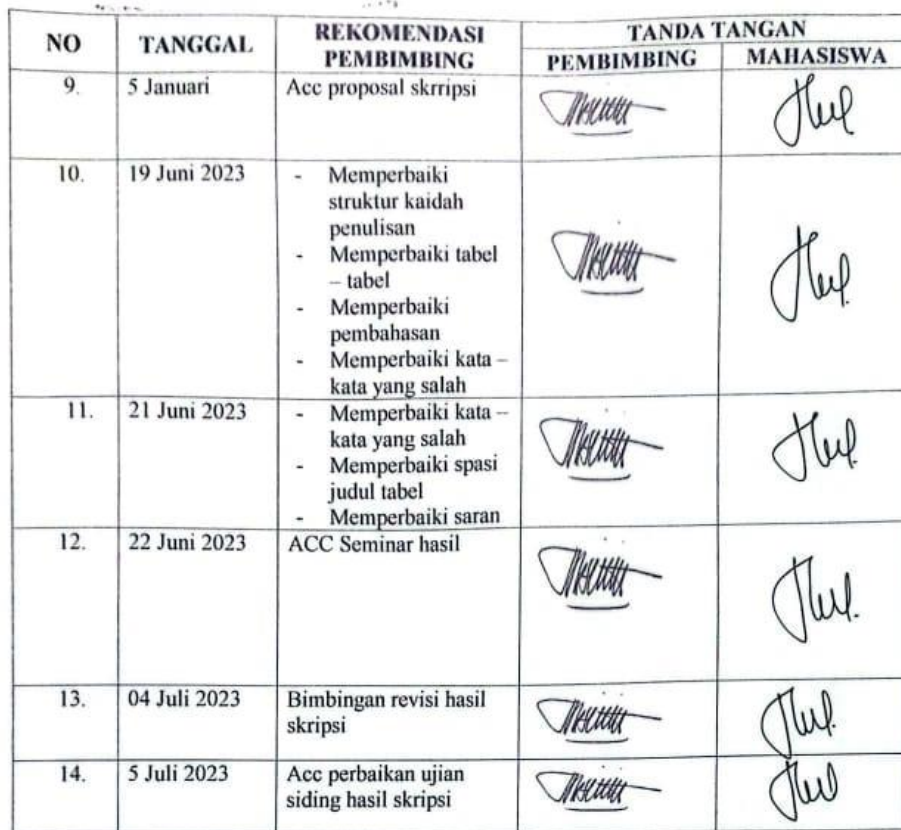 NO TANGGAL REKOMENDASI PEMBIMBING TANDA TANGAN
PEMBIMBING MAHASISWA
9. 5 Januari Acc proposal skrripsi
10. 19 Juni 2023 - Memperbaiki
struktur kaidah
penulisan
- Memperbaiki tabel
– tabel
- Memperbaiki
pembahasan
- Memperbaiki kata –
kata yang salah
11. 21 Juni 2023 - Memperbaiki kata –
kata yang salah
- Memperbaiki spasi
judul tabel
- Memperbaiki saran
12. 22 Juni 2023 ACC Seminar hasil
13. 04 Juli 2023 Bimbingan revisi hasil
skripsi
14. 5 Juli 2023 Acc perbaikan ujian
siding hasil skripsi